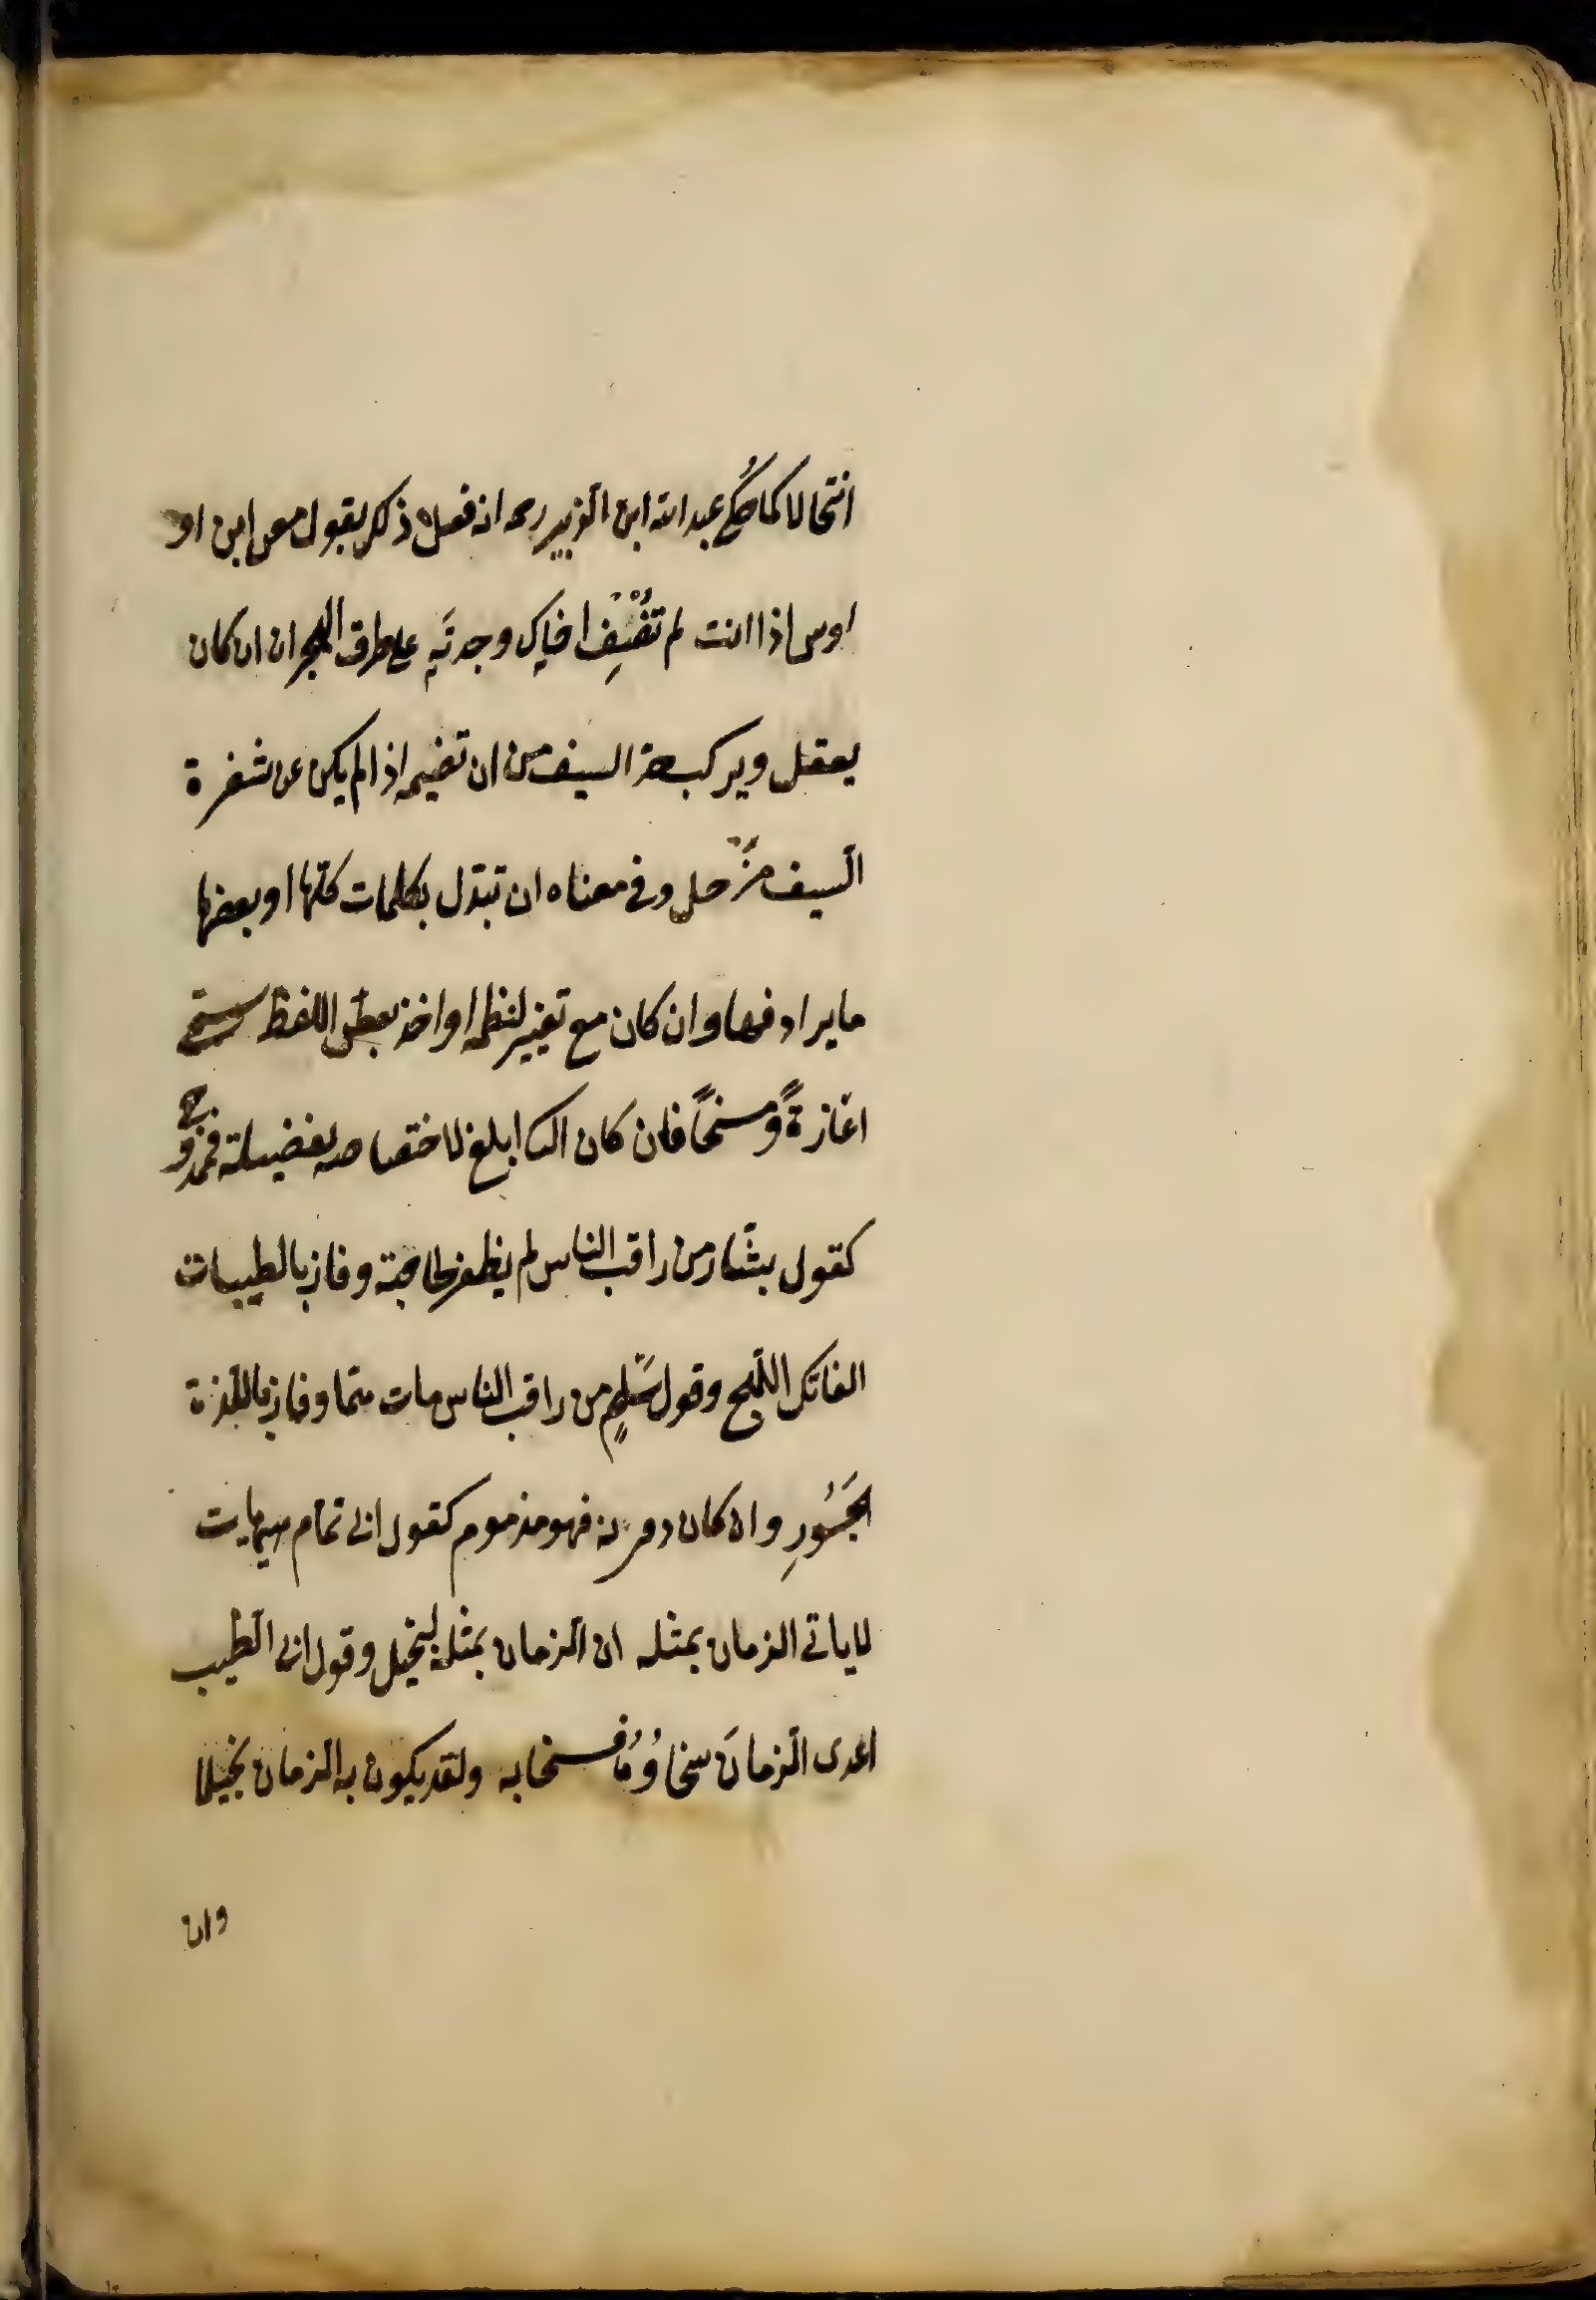 انتحالا كما حُكي عبد الله ابن الزبير رحمه انه فعل ذلك بقول معن ابن او
اوس اذا انت لم تُنْصِف اخاك وجدتَه على طرف الهجران ان كان
يعقل ويركب حد السيف من ان تضيمه اذا لم يكن عن شفرة
السيف مَزْحل وفي معناه ان تبدّل بكلمات كلّها او بعضها
ما يرادفها وان كان مع تغيير لنظمه او اخذ بعض اللفظ سمّي
اغارةً ومسخًا فان كان الثا ابلغ لاختصاصه بفضيلة فممدوح
كقول بشّار من راقب الناس لم يظفر بحاجته وفاز بالطيبات
الفاتك اللّهج وقول سَلْمٍ من راقب الناس مات همّا وفاز باللّذة
الجَسُورِ وان كان دونه فهو مذموم كقول ابي تمام هيهات
لا ياتي الزمان بمثله ان الزمان بمثله لبخيل وقول ابي الطيب
اعدى الزمانَ سخاؤُهُ فسخا به ولقد يكون به الزمان بخيلا
وان